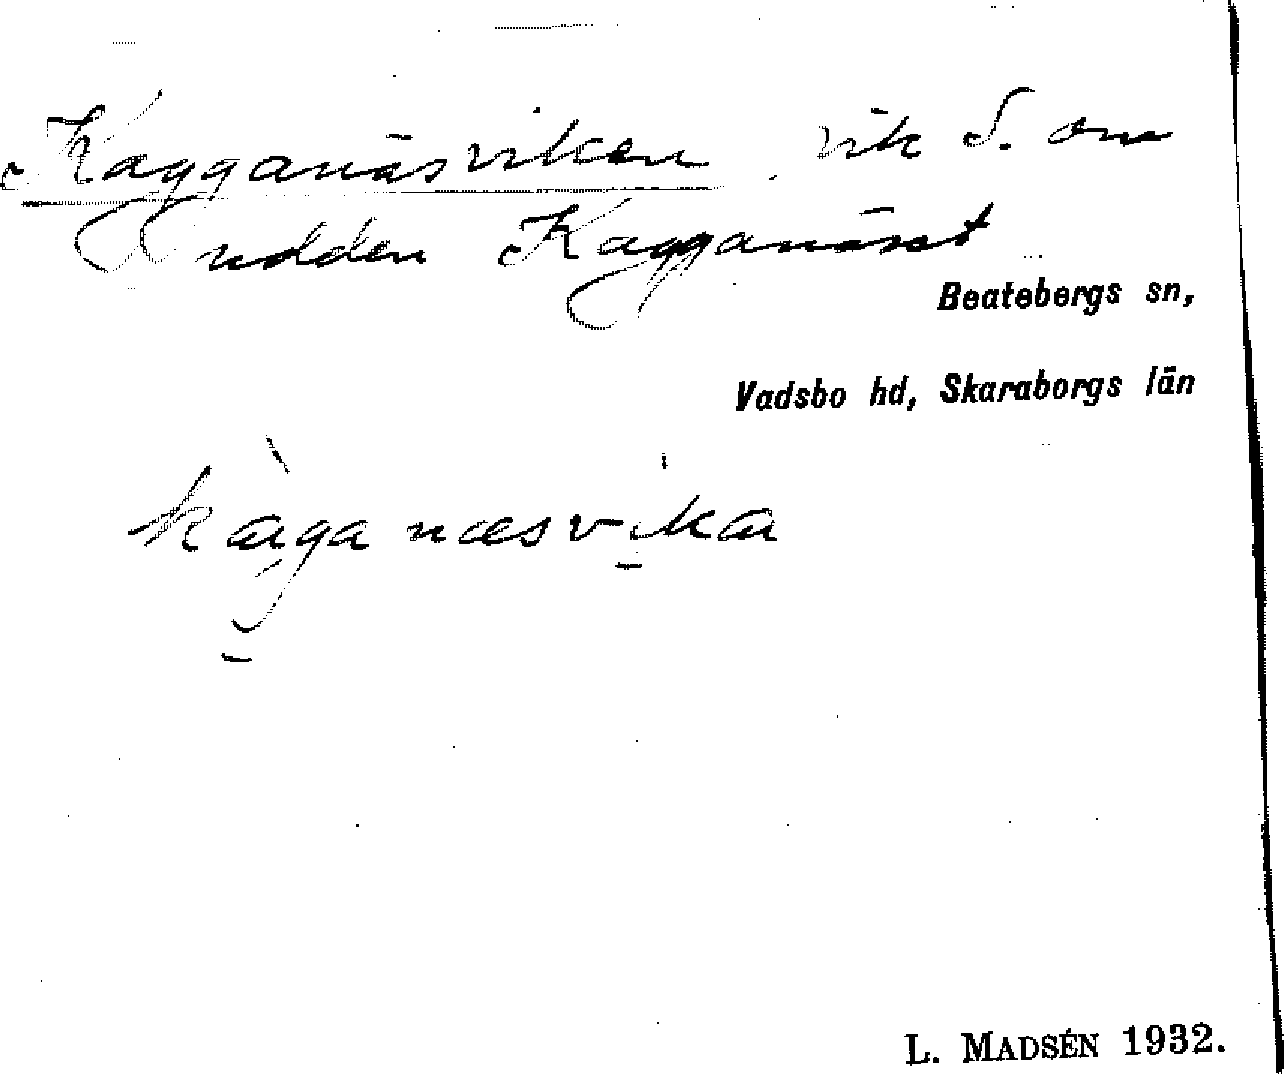 Kagganäsviken, vik S. om
udden Kagganäset
Beatebergs sn,
Vadsbo hd, Skaraborgs län
kàga næsvika
L. MADSÉN 1932.